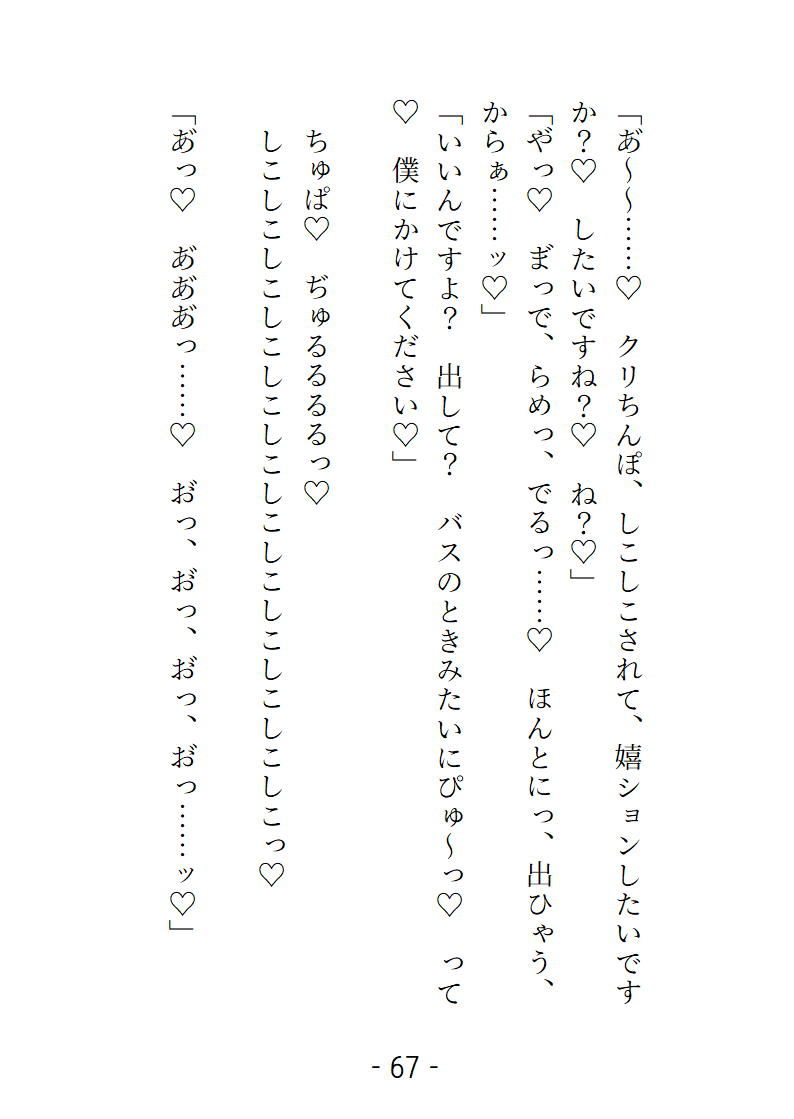 「あ゙～～……♡　クリちんぽ、しこしこされて、嬉ションしたいです
か？♡　したいですね？♡　ね？♡」
「や゙っ♡　ま゙っで、らめっ、でるっ……♡　ほんとにっ、出ひゃう、
からぁ……ッ♡」
「いいんですよ？　出して？　バスのときみたいにぴゅ～っ♡　って
♡　僕にかけてください♡」
ちゅぱ♡　ぢゅるるるるっ♡
しこしこしこしこしこしこしこしこしこしこしこしこっ♡
「あ゙っ♡　あ゙あ゙あ゙っ……♡　お゙っ、お゙っ、お゙っ、お゙っ……ッ♡」
- 67 -